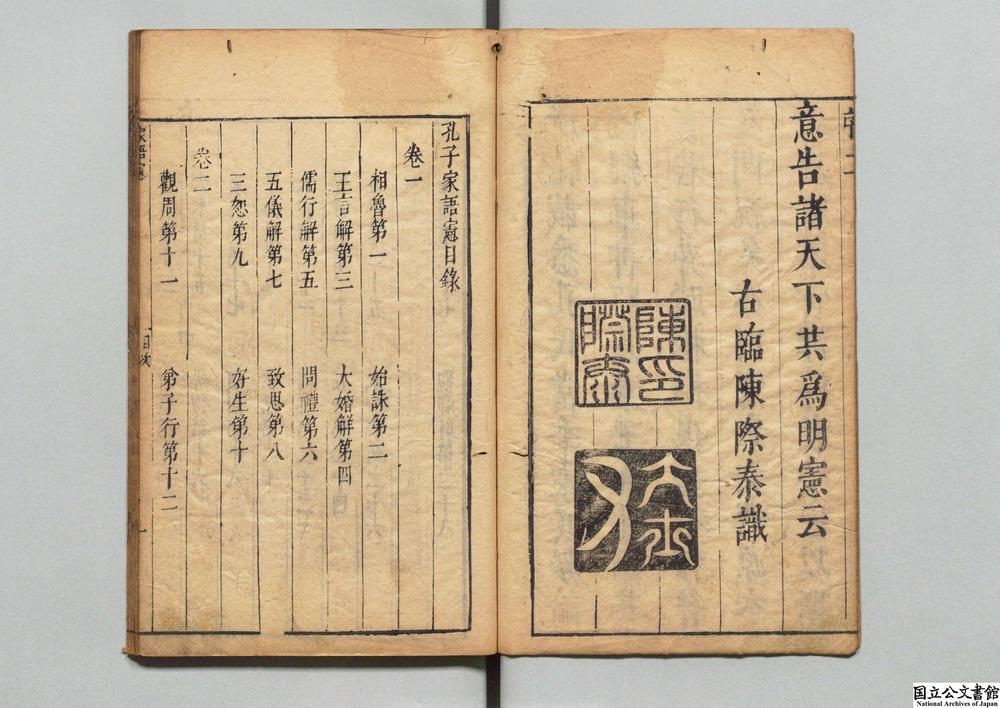 意告諸天下共爲明憲云
古臨陳際泰識
陳印
際泰
大士
父
孔子家語憲目錄
卷一
相魯第一 始誅第二
王言解第三 大婚解第四
儒行解第五 問禮第六
五儀解第七 致思第八
三恕第九 好生第十
卷二
觀周第十一 弟子行第十二
家語憲
目次
一
国立公文書館
National Archives of Japan